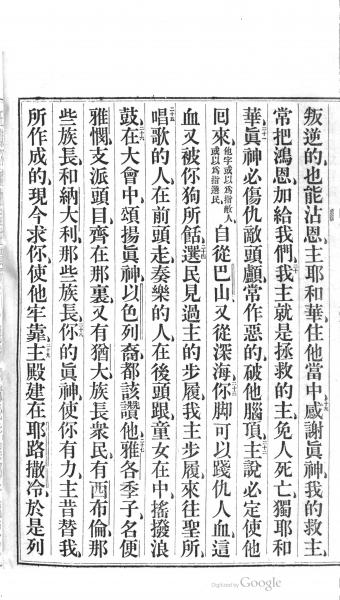 叛逆的也能沾恩主耶和華住他當中感謝眞神我的救主
常把鴻恩加給我們我主就是拯救的主免人死亡獨耶和
華眞神必傷仇敵頭顱常作惡的破他腦頂主說必定使他
囘來他字或以爲指敵人或以爲指選民自從巴山又從深海你脚可以踐仇人血這
血又被你狗所餂選民見過主的步履我主步履來往聖所
唱歌的人在前頭走奏樂的人在後頭跟童女在中搖撥浪
鼓在大會中頌揚眞神以色列裔都該讚他雅各季子名便
雅憫支派頭目齊在那裏又有猶大族長衆民有西布倫那
些族長和納大利那些族長你的眞神使你有力主昔替我
所作成的現今求你使他牢靠主殿建在耶路撒冷於是列
Digitized by Google